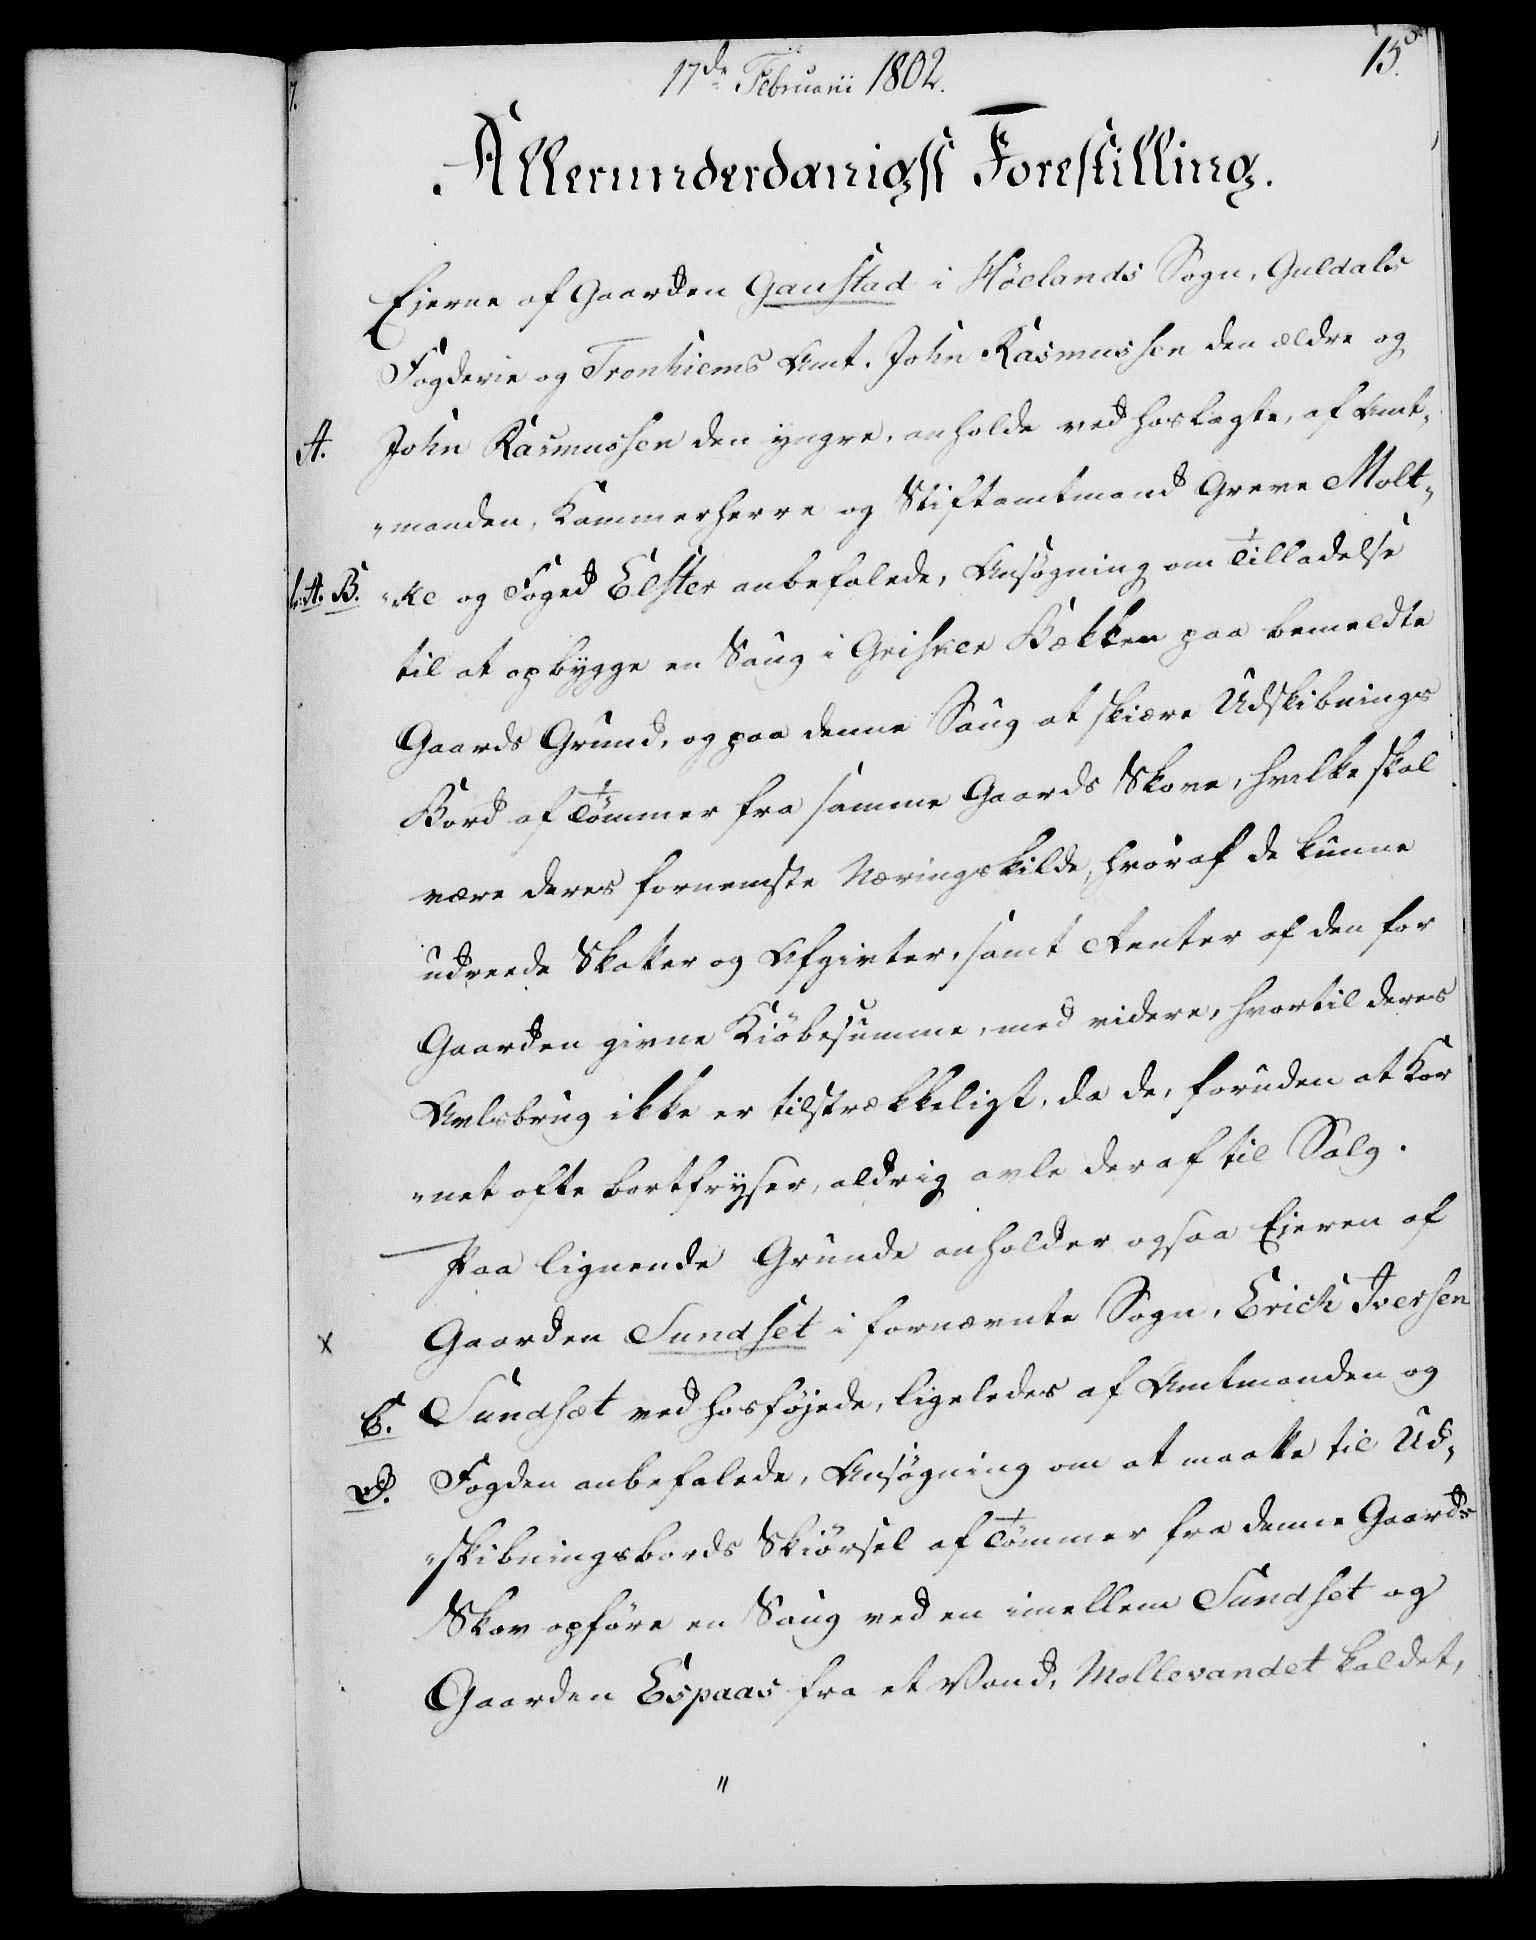 17de Februarii 1802.
15.
Allerunderdanigst Forestilling.
Ejerne af Gaarden Gaustad i Höelands Sogn, Guldals
Fogderie og Tronhiems Amt, John Rasmussen den ældre og
A. John Rasmussen den yngre, anholde ved hoslagte, af Amt-
"manden, Kammerherre og Stiftamtmand Greve Molt-
A. B. "ke og Foged Elster anbefalede, Ansøgning om Tilladelse
til at opbygge en Saug i Bækken paa bemeldte
Gaards Grund, og paa denne Saug at skiære Udskibnings
Bord af Tömmer fra samme Gaards Skove, hvilke skal
være deres fornemste Næringskilde, hvoraf de kunne
udreede Skatter og Afgivter, samt Renter af den for
Gaarden givne Kiöbesumme, med videre, hvortil deres
Avlsbrug ikke er tilstrækkeligt, da de, foruden at Kor
"net ofte bortfryser, aldrig avle deraf til Salg.
Paa lignende Grunde anholder ogsaa Ejeren af
x Gaarden Sundset i fornævnte Sogn, Erich Iversen
C. Sundsæt ved hosföjede, ligeledes af Amtmanden og
D. Fogden anbefalede, Ansøgning om at maatte til Ud-
"skibningsbords Skiörsel af Tömmer fra denne Gaards
Skov opföre en Saug ved en imellem Sundset og
Gaarden Espaas fra et Vand, Mollevandet kaldet,
"